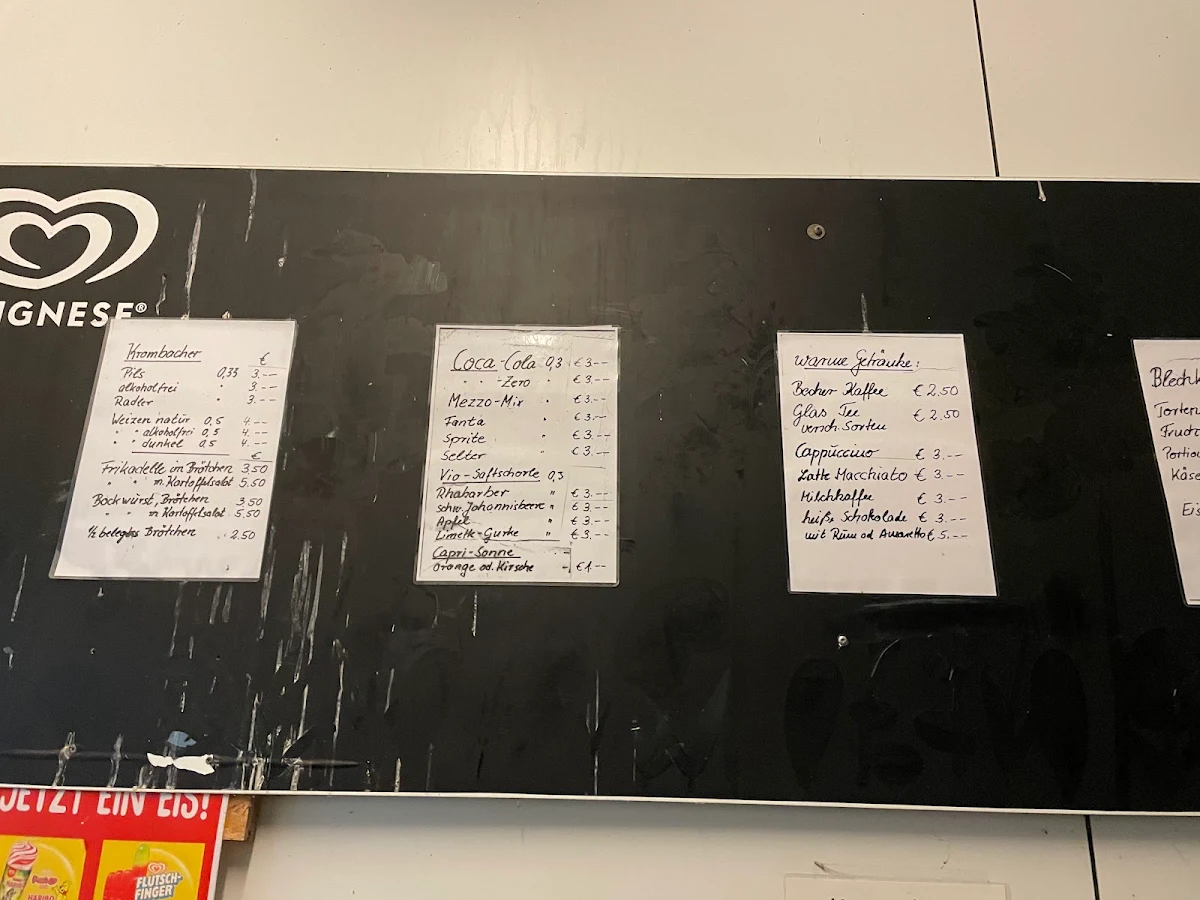 IGNESE®
Krombacher €
Pils 0,33 3.--
alkoholfrei " 3.--
Radler " 3.--
Weizen natur 0,5 4.--
" " alkoholfrei 0,5 4.--
" " dunkel 0,5 4.--
€
Frikadelle im Brötchen 3.50
" " m. Kartoffelsalat 5.50
Bockwurst, Brötchen 3.50
" " m Kartoffelsalat 5.50
1/2 belegtes Brötchen 2.50
Coca-Cola 0,3 € 3.--
" " -Zero " € 3.--
Mezzo-Mix " € 3.--
Fanta " € 3.--
Sprite " € 3.--
Selter " € 3.--
Vio-Saftschorle 0,3
Rhabarber " € 3.--
schw. Johannisbeere " € 3.--
Apfel " € 3.--
Limette-Gurke " € 3.--
Capri-Sonne
Orange od. Kirsche - €1--
warme Getränke:
Becher Kaffee € 2.50
Glas Tee € 2.50
versch. Sorten
Cappuccino € 3.--
Latte Macchiato € 3.--
Milchkaffee € 3.--
heiße Schokolade € 3.--
mit Rum od Amaretto € 5.--
Blechk
Torten
Frucht
Portion
Käse
Eis
JETZT EIN EIS!
HARIBO
FLUTSCH-
FINGER